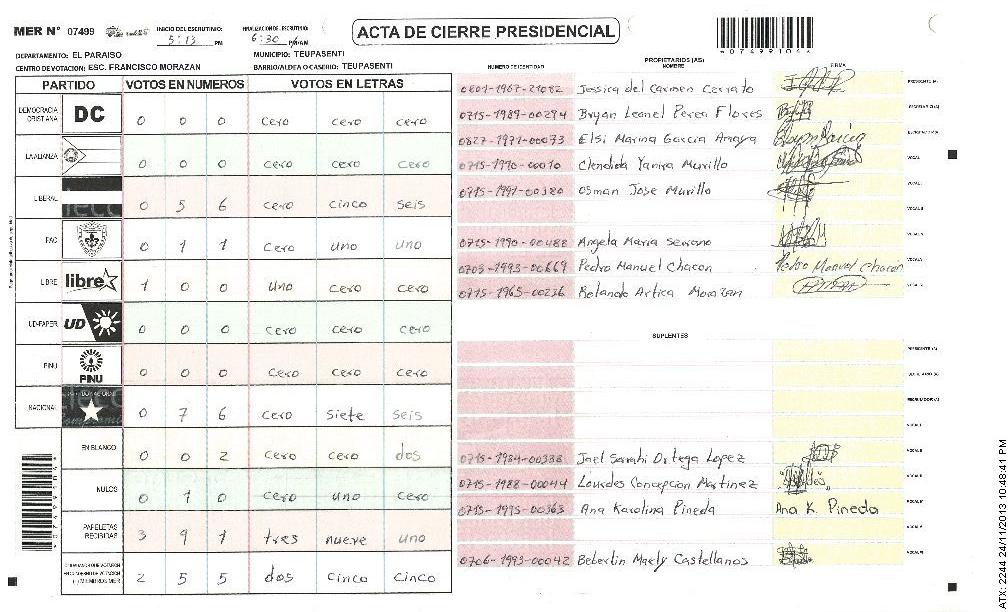 MER N° 07499 INICIO DEL ESCRUTINIO: 5:13 PM FINALIZACION DEL ESCRUTINIO: 6:30 PM/AM ACTA DE CIERRE PRESIDENCIAL
DEPARTAMENTO: EL PARAISO MUNICIPIO: TEUPASENTI
CENTRO DE VOTACION: ESC. FRANCISCO MORAZAN BARRIO/ALDEA O CASERIO: TEUPASENTI
PARTIDO VOTOS EN NUMEROS VOTOS EN LETRAS
DEMOCRACIA CRISTIANA DC 0 0 0 cero cero cero
LA ALIANZA 0 0 0 cero cero cero
LIBERAL 0 5 6 cero cinco seis
PAC 0 1 1 cero uno uno
LIBRE libre 1 0 0 uno cero cero
UD-FAPER UD 0 0 0 cero cero cero
PINU PINU 0 0 0 cero cero cero
NACIONAL 0 7 6 cero siete seis
EN BLANCO 0 0 2 cero cero dos
NULOS 0 1 0 cero uno cero
PAPELETAS RECIBIDAS 3 9 1 tres nueve uno
2 5 5 dos cinco cinco
PROPIETARIOS (AS)
NUMERO DE IDENTIDAD NOMBRE FIRMA
0801-1967-21082 Jessica del Carmen Cerrato PRESIDENTE (A)
0715-1989-00294 Bryan Leonel Perea Flores SECRETARIO (A)
0827-1971-00073 Elsi Marina Garcia Anaya ESCRUTADOR (A)
0715-1990-00010 Clendida Yanira Murillo VOCAL I
0715-1991-00380 Osman Jose Murillo VOCAL II
VOCAL III
0715-1990-00488 Angela Maria Serrano VOCAL IV
0703-1993-00669 Pedro Manuel Chacon Pedro Manuel Chacón VOCAL V
0715-1965-00236 Rolando Artica Morazan
SUPLENTES
PRESIDENTE (A)
SECRETARIO (A)
ESCRUTADOR (A)
VOCAL I
0715-1984-00338 Jael Sarrahi Ortega Lopez VOCAL II
0715-1988-00044 Lourdes Concepcion Martinez VOCAL III
0715-1995-00363 Ana Karolina Pineda Ana K. Pineda VOCAL IV
VOCAL V
0706-1993-00042 Beberlin Maely Castellanos VOCAL VI
ATX: 2244 24/11/2013 10:48:41 PM